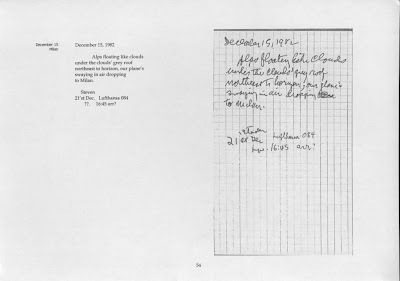 December 15
Milan
December 15, 1982
Alps floating like clouds
under the clouds' grey roof
northeast to horizon, our plane's
swaying in air dropping
to Milan.
Steven
21'st Dec. Lufthansa 084
??. 16:45 arr?
54
December 15, 1982
Alps floating like clouds
under the clouds' grey roof
northeast to horizon, our plane's
swaying in air dropping
to Milan.
Steven
21 st Dec Lufthansa 084
16:45 arr?